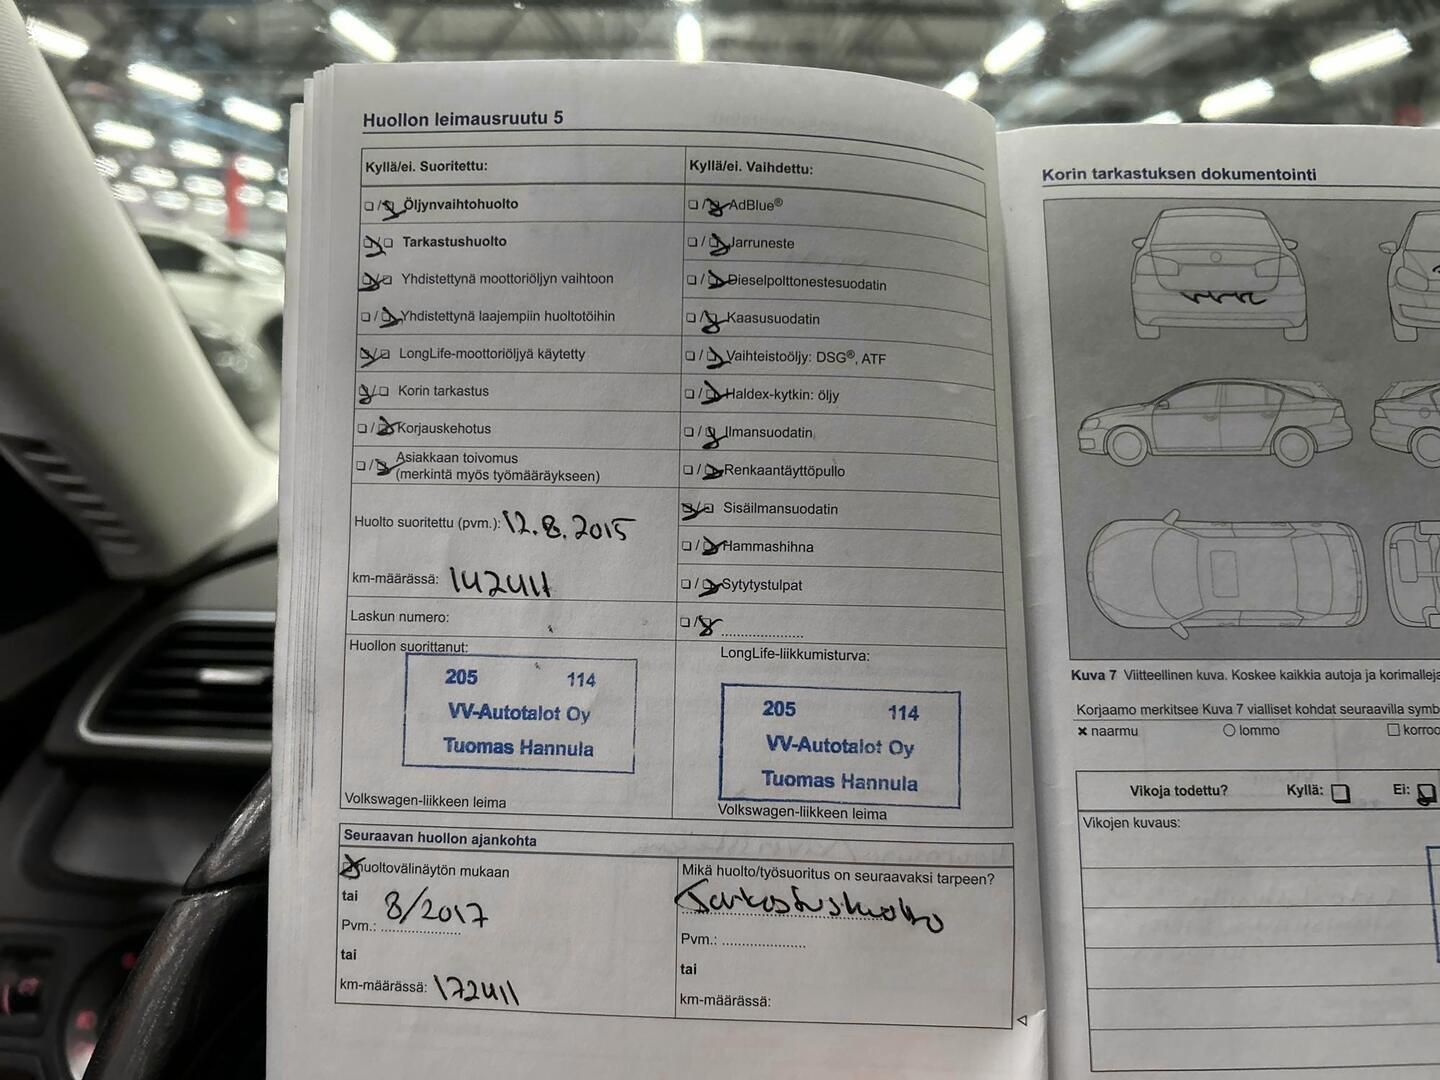 Huollon leimausruutu 5
Kyllä/ei. Suoritettu:
Öljynvaihtohuolto
Tarkastushuolto
Yhdistettynä moottoriöljyn vaihtoon
Yhdistettynä laajempiin huoltotöihin
LongLife-moottoriöljyä käytetty
Korin tarkastus
Korjauskehotus
Asiakkaan toivomus
(merkintä myös työmääräykseen)
Huolto suoritettu (pvm.): 12.8.2015
km-määrässä: 142411
Laskun numero:
Huollon suorittanut:
205 114
VV-Autotalot Oy
Tuomas Hannula
Volkswagen-liikkeen leima
Kyllä/ei. Vaihdettu:
AdBlue®
Jarruneste
Dieselpolttonestesuodatin
Kaasusuodatin
Vaihteistoöljy: DSG®, ATF
Haldex-kytkin: öljy
Ilmansuodatin
Renkaantäyttöpullo
Sisäilmansuodatin
Hammashihna
Sytytystulpat
LongLife-liikkumisturva:
205 114
VV-Autotalot Oy
Tuomas Hannula
Volkswagen-liikkeen leima
Seuraavan huollon ajankohta
huoltovälinäytön mukaan
tai
Pvm.: 8/2017
tai
km-määrässä: 172411
Mikä huolto/työsuoritus on seuraavaksi tarpeen?
Tarkastushuolto
Pvm.:
tai
km-määrässä:
Korin tarkastuksen dokumentointi
Kuva 7 Viitteellinen kuva. Koskee kaikkia autoja ja korimalleja
Korjaamo merkitsee Kuva 7 vialliset kohdat seuraavilla symb
naarmu lommo korroo
Vikoja todettu? Kyllä: Ei:
Vikojen kuvaus: